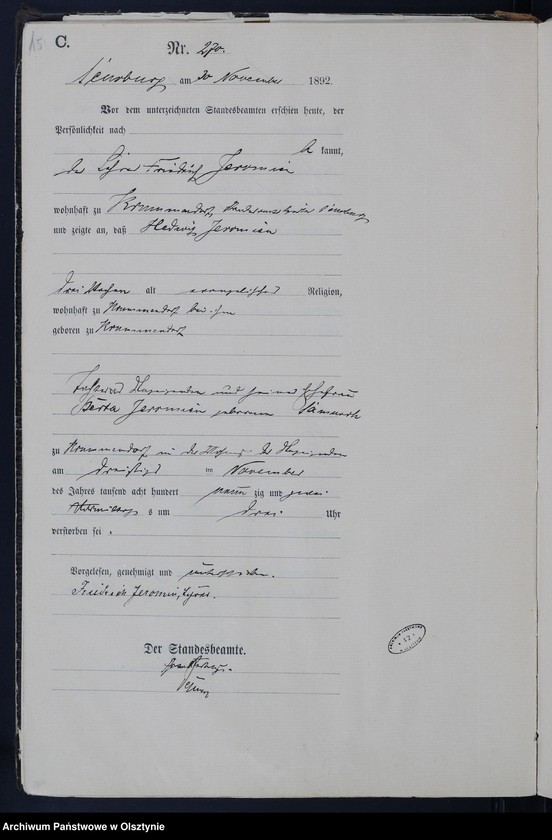 15
C.
Nr. 270.
Sensburg am 30 November 1892.
Vor dem unterzeichneten Standesbeamten erschien heute, der
Persönlichkeit nach
be kannt,
der Lehrer Friedrich Jeromin
wohnhaft zu Krummendorf, Sensburg
und zeigte an, daß Hedwig Jeromin
drei Wochen alt evangelischer Religion,
wohnhaft zu Krummendorf bei ihm
geboren zu Krummendorf
Tochter des Anzeigenden und seiner Ehefrau
Berta Jeromin geborenen
zu Krummendorf in der Wohnung des Anzeigenden
am dreißigsten im November
des Jahres tausend acht hundert neun zig und zwei
Vormittags s um drei Uhr
verstorben sei.
Vorgelesen, genehmigt und unterschrieben.
Friedrich Jeromin, Lehrer.
Der Standesbeamte.
Archiwum Państwowe w Olsztynie